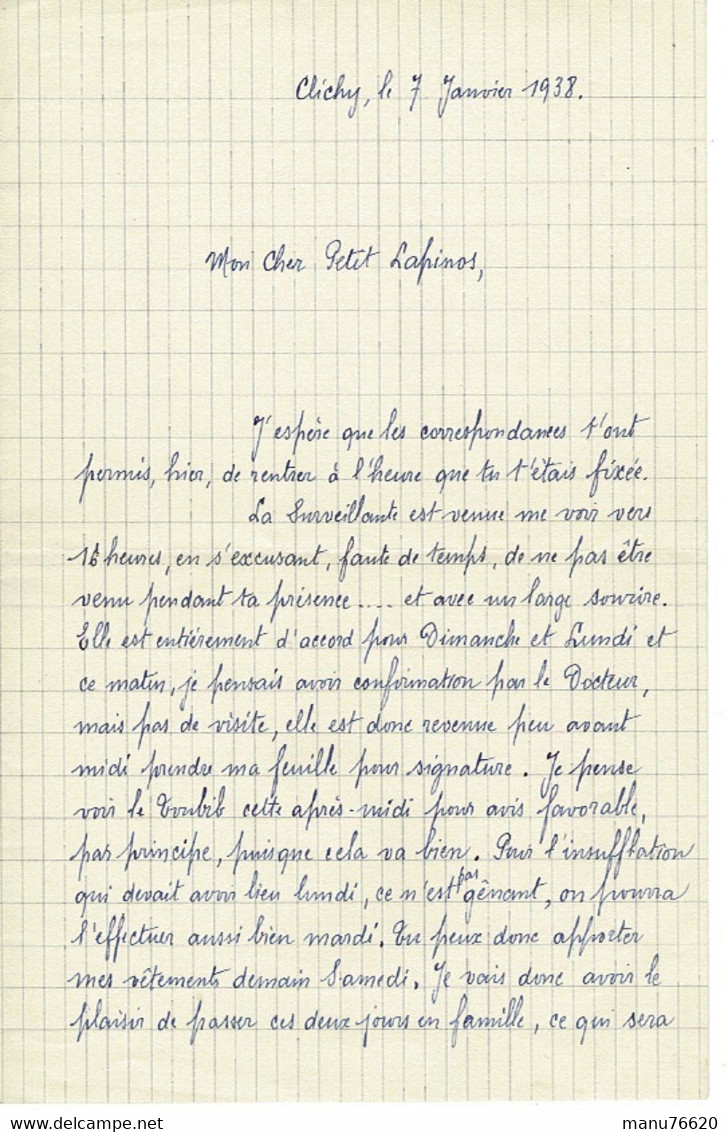 Clichy, le 7 Janvier 1938.
Mon Cher Petit Lapinos,
J'espère que les correspondances t'ont
permis, hier, de rentrer à l'heure que tu t'étais fixée.
La Surveillante est venue me voir vers
heures, en s'excusant, faute de temps, de ne pas être
venu pendant ta présence .... et avec un large sourire.
Elle est entièrement d'accord pour Dimanche et Lundi et
ce matin, je pensais avoir confirmation par le Docteur,
mais pas de visite, elle est donc revenue peu avant
midi prendre ma feuille pour signature. Je pense
voir le Toubib cette après-midi pour avis favorable,
par principe, puisque cela va bien. Pour l'insufflation
qui devait avoir lieu lundi, ce n'est pas gênant, on pourra
l'effectuer aussi bien mardi. Tu peux donc apporter
mes vêtements demain Samedi. Je vais donc avoir le
plaisir de passer ces deux jours en famille, ce qui sera
manu76620